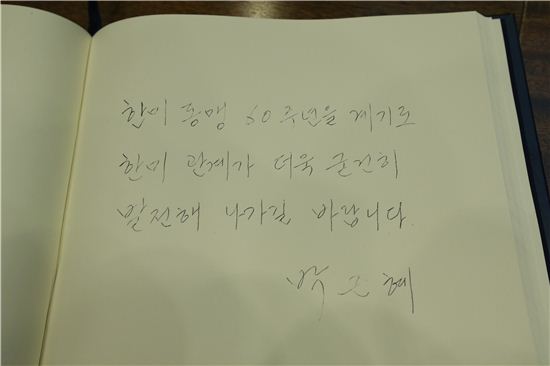 한미 동맹 60주년을 계기로
한미 관계가 더욱 굳건히
발전해 나가길 바랍니다.
박근혜